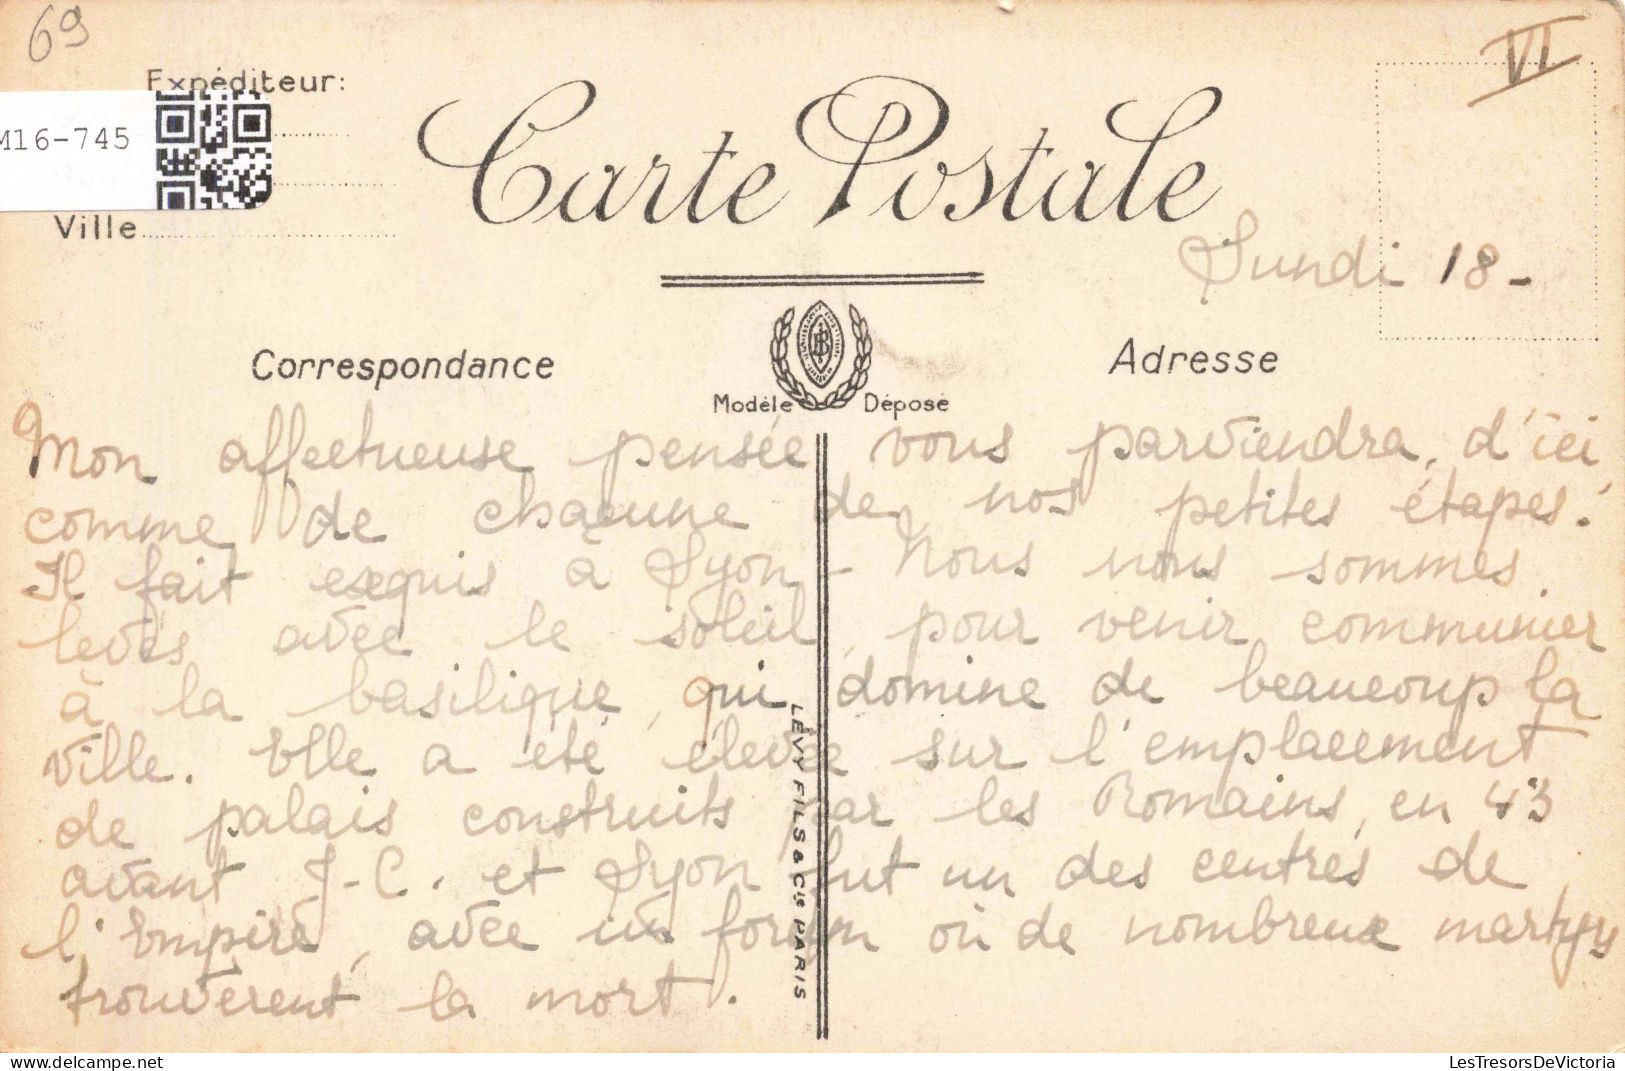 69
VI
Expéditeur:
M16-745
Ville
Carte Postale
Lundi 18-
Correspondance
Adresse
Modèle Déposé
Mon affectueuse pensée vous parviendra, d'ici
comme de chacune de nos petites étapes.
Il fait exquis à Lyon - Nous nous sommes
levés avec le soleil, pour venir communier
à la basilique, qui domine de beaucoup la
ville. Elle a été élevée sur l'emplacement
de palais construits par les Romains, en 43
avant J-C. et Lyon fut un des centres de
l'Empire, avec un forum où de nombreux martyrs
trouvèrent la mort.
LÉVY FILS & Cie PARIS
LesTresorsDeVictoria
https://www.delcampe.net